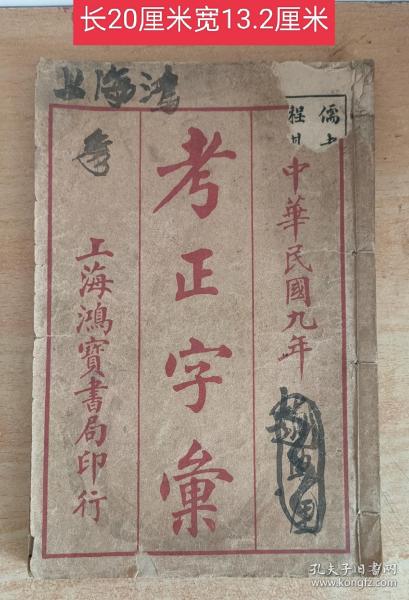 长20厘米宽13.2厘米
上海鸿
儒
程
中華民國九年
考正字彙
上海鴻寶書局印行
孔夫子旧书网
www.kongfz.com